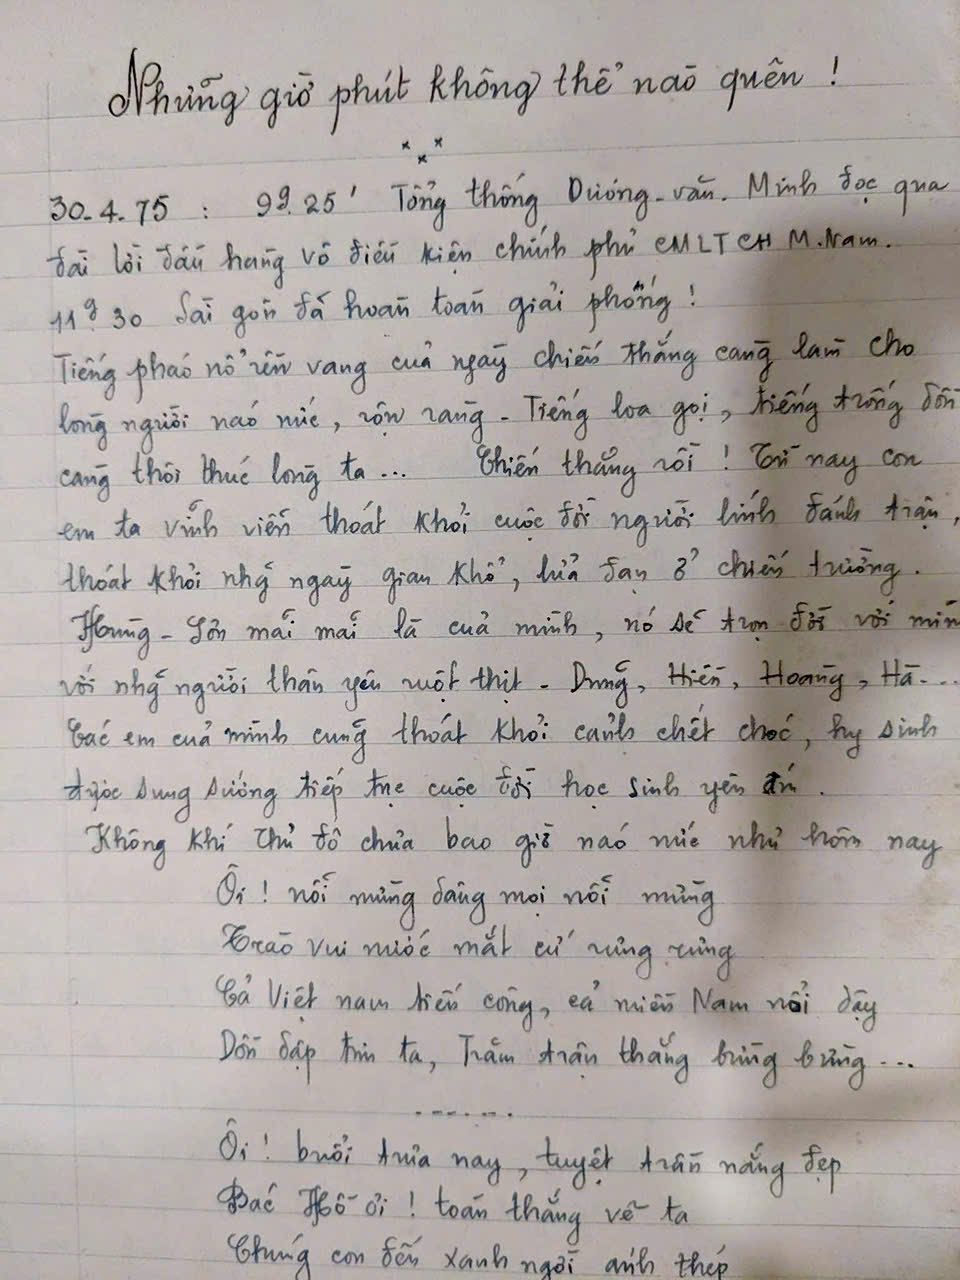 Những giờ phút không thể nào quên !
30.4.75 : 9g.25' Tổng thống Dương-văn-Minh đọc qua
đài lời đầu hàng vô điều kiện chính phủ CMLTCH M.Nam.
11g.30 Sài gòn đã hoàn toàn giải phóng !
Tiếng pháo nổ rền vang của ngày chiến thắng càng làm cho
lòng người náo nức, rộn ràng - Tiếng loa gọi, tiếng trống dồn
càng thôi thúc lòng ta ... Chiến thắng rồi ! Từ nay con
em ta vĩnh viễn thoát khỏi cuộc đời người lính đánh trận,
thoát khỏi nhg ngày gian khổ, lửa đạn ở chiến trường.
Hùng - Sơn mãi mãi là của mình, nó sẽ trọn đời với mìn
với nhg người thân yêu ruột thịt - Dung, Hiền, Hoàng, Hà ...
Các em của mình cũng thoát khỏi cảnh chết chóc, hy sinh
được sung sướng tiếp tục cuộc đời học sinh yên ấm.
Không khí thủ đô chưa bao giờ náo nức như hôm nay
Ôi ! nỗi mừng dâng mọi nỗi mừng
Trào vui nước mắt cứ rưng rưng
Cả Việt nam tiến công, cả miền Nam nổi dậy
Dồn dập tim ta, Trăm trận thắng bừng bừng ...
Ôi ! buổi trưa nay, tuyệt trần nắng đẹp
Bác Hồ ơi ! toàn thắng về ta
Chúng con đến xanh ngời ánh thép